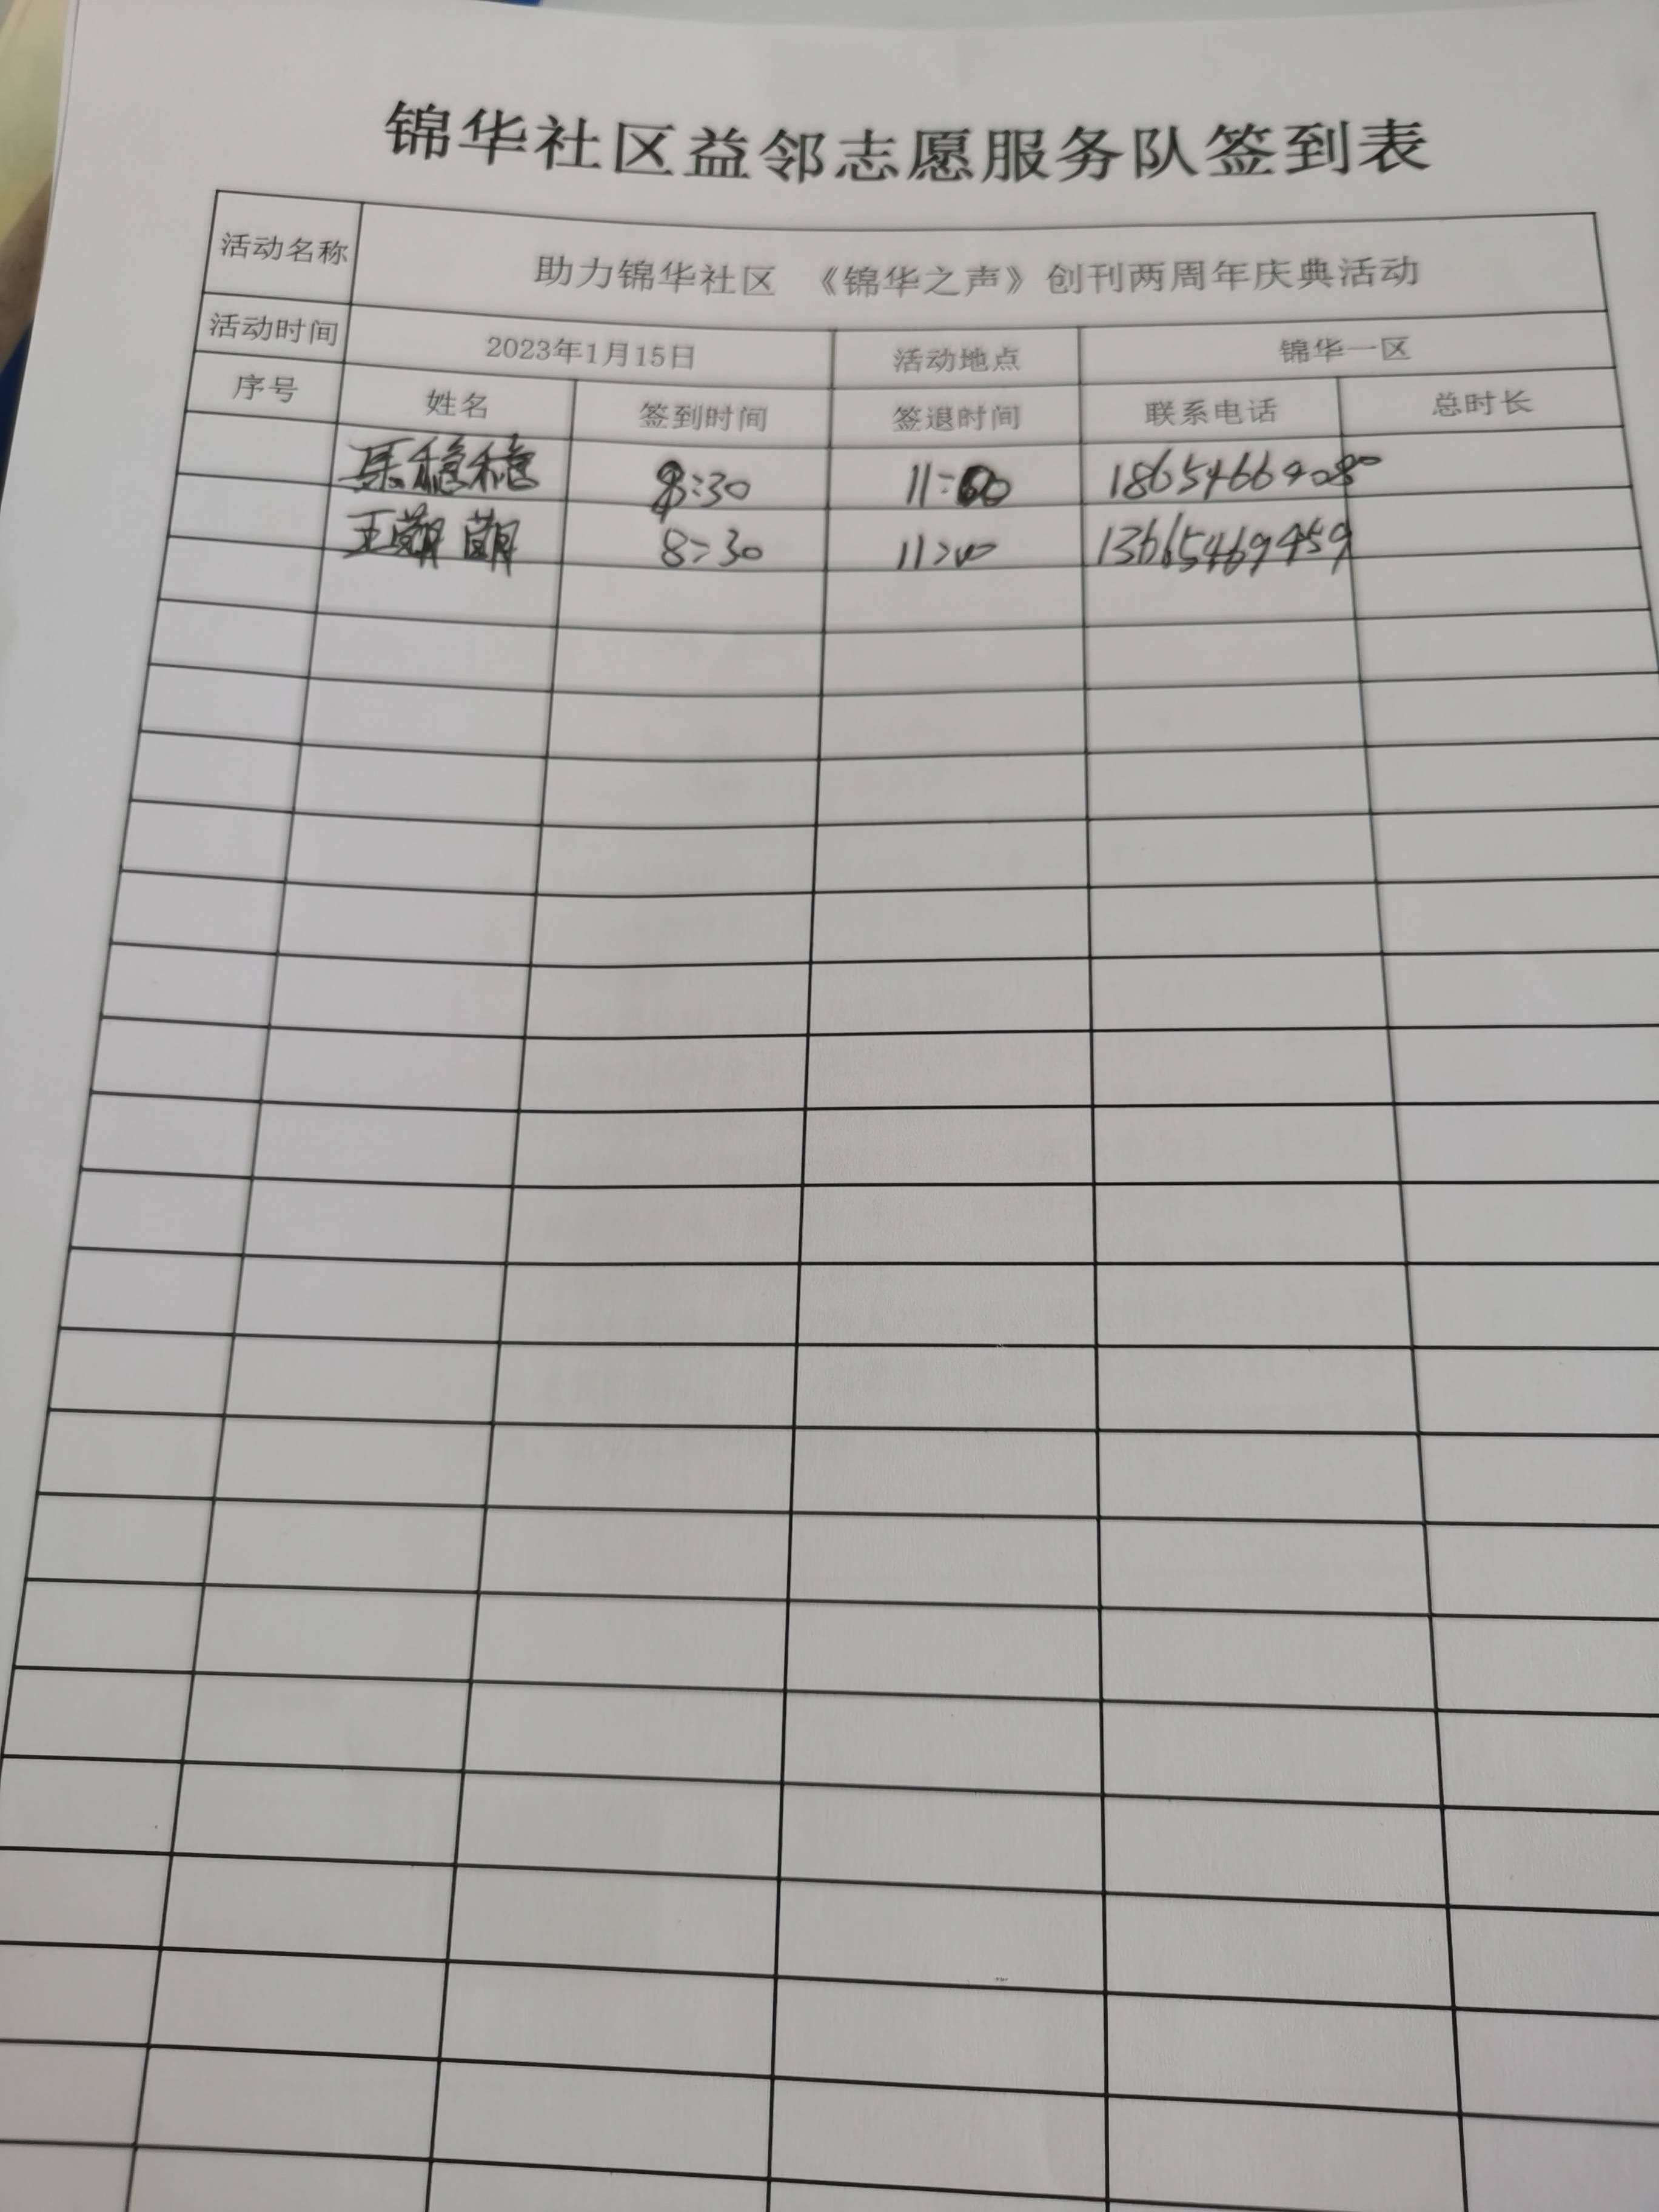 锦华社区益邻志愿服务队签到表
活动名称 助力锦华社区 《锦华之声》创刊两周年庆典活动
活动时间 2023年1月15日 活动地点 锦华一区
序号 姓名 签到时间 签退时间 联系电话 总时长
稳稳 8:30 11:00 18654664080
王萌萌 8:30 11:00 13665469459